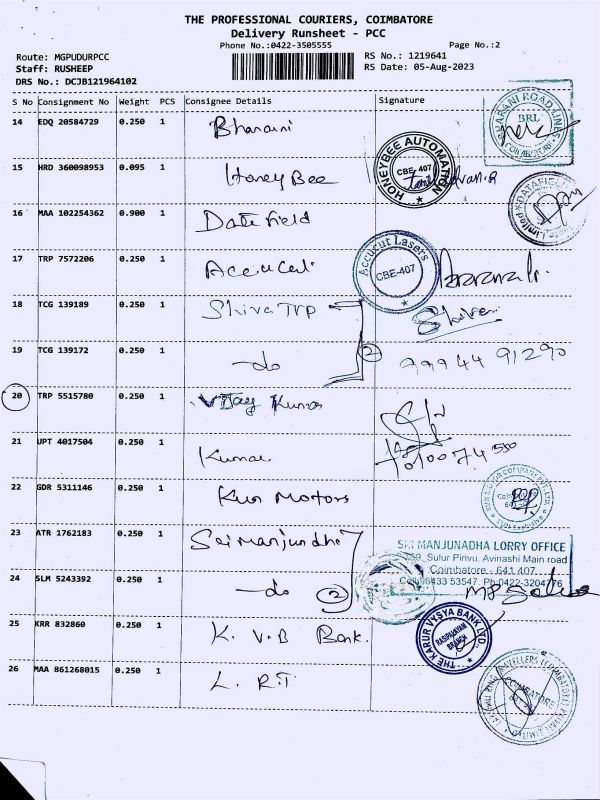 THE PROFESSIONAL COURIERS, COIMBATORE
Delivery Runsheet - PCC
Phone No.:0422-3505555
Page No.:2
Route: MGPUDURPCC
RS No.: 1219641
Staff: RUSHEEP
RS Date: 05-Aug-2023
DRS No.: DCJB121964102
S No Consignment No Weight PCS Consignee Details Signature
14 EDQ 20584729 0.250 1 Bharani
BRL
15 HRD 360098953 0.095 1 Honey Bee
HONEYBEE AUTOMATION CBE-407
16 MAA 102254362 0.900 1 Data Field
DATAFIELD Limited
17 TRP 7572206 0.250 1 Accucut
Accucut Lasers CBE-407
18 TCG 139189 0.250 1 Shiva TRP
19 TCG 139172 0.250 1 do 2 99944 91290
20 TRP 5515780 0.250 1 Vijay Kumar
21 UPT 4017504 0.250 1 Kumar
22 GDR 5311146 0.250 1 Kun Motors
23 ATR 1762183 0.250 1 Sai Manjundha
SRI MANJUNADHA LORRY OFFICE
Sulur Pirivu, Avinashi Main road
Coimbatore - 641 407
24 SLM 5243392 0.250 1 do 2
Cell:98433 53547, Ph:0422-3204776
25 KRR 832860 0.250 1 K. V. B Bank.
THE KARUR VYSYA BANK LTD. RASIPALAYAM BRANCH
26 MAA 861268015 0.250 1 L. R. T
COIMBATORE